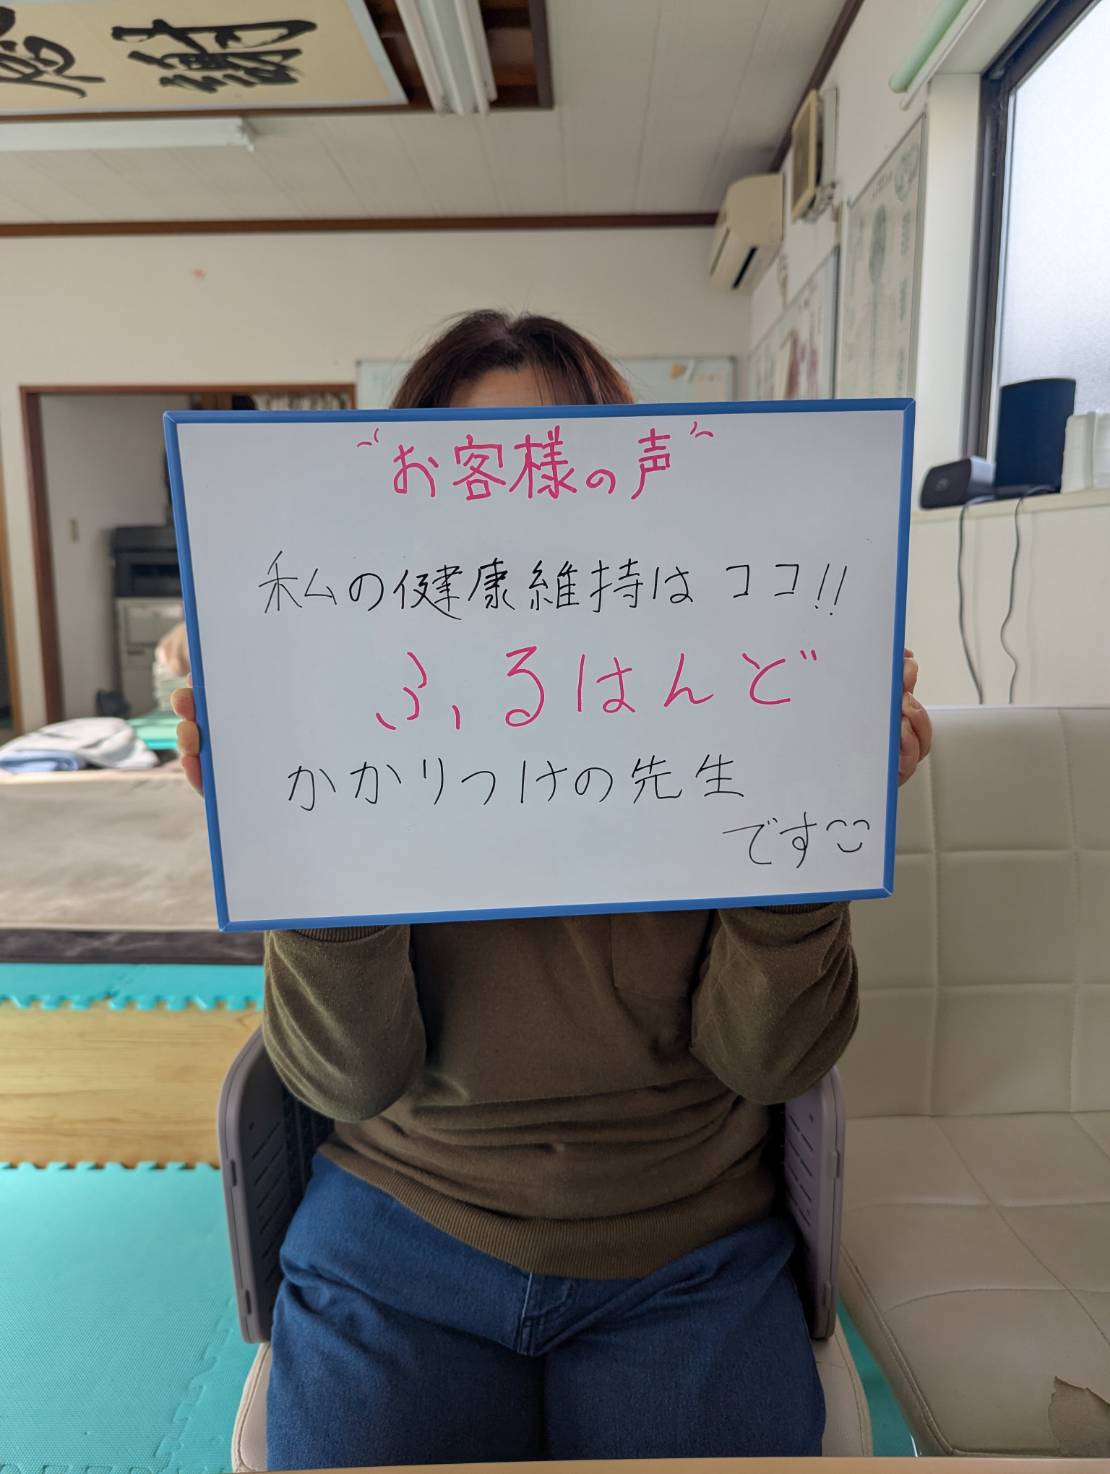 感謝
"お客様の声"
私の健康維持はココ!!
ふるはんど
かかりつけの先生
です